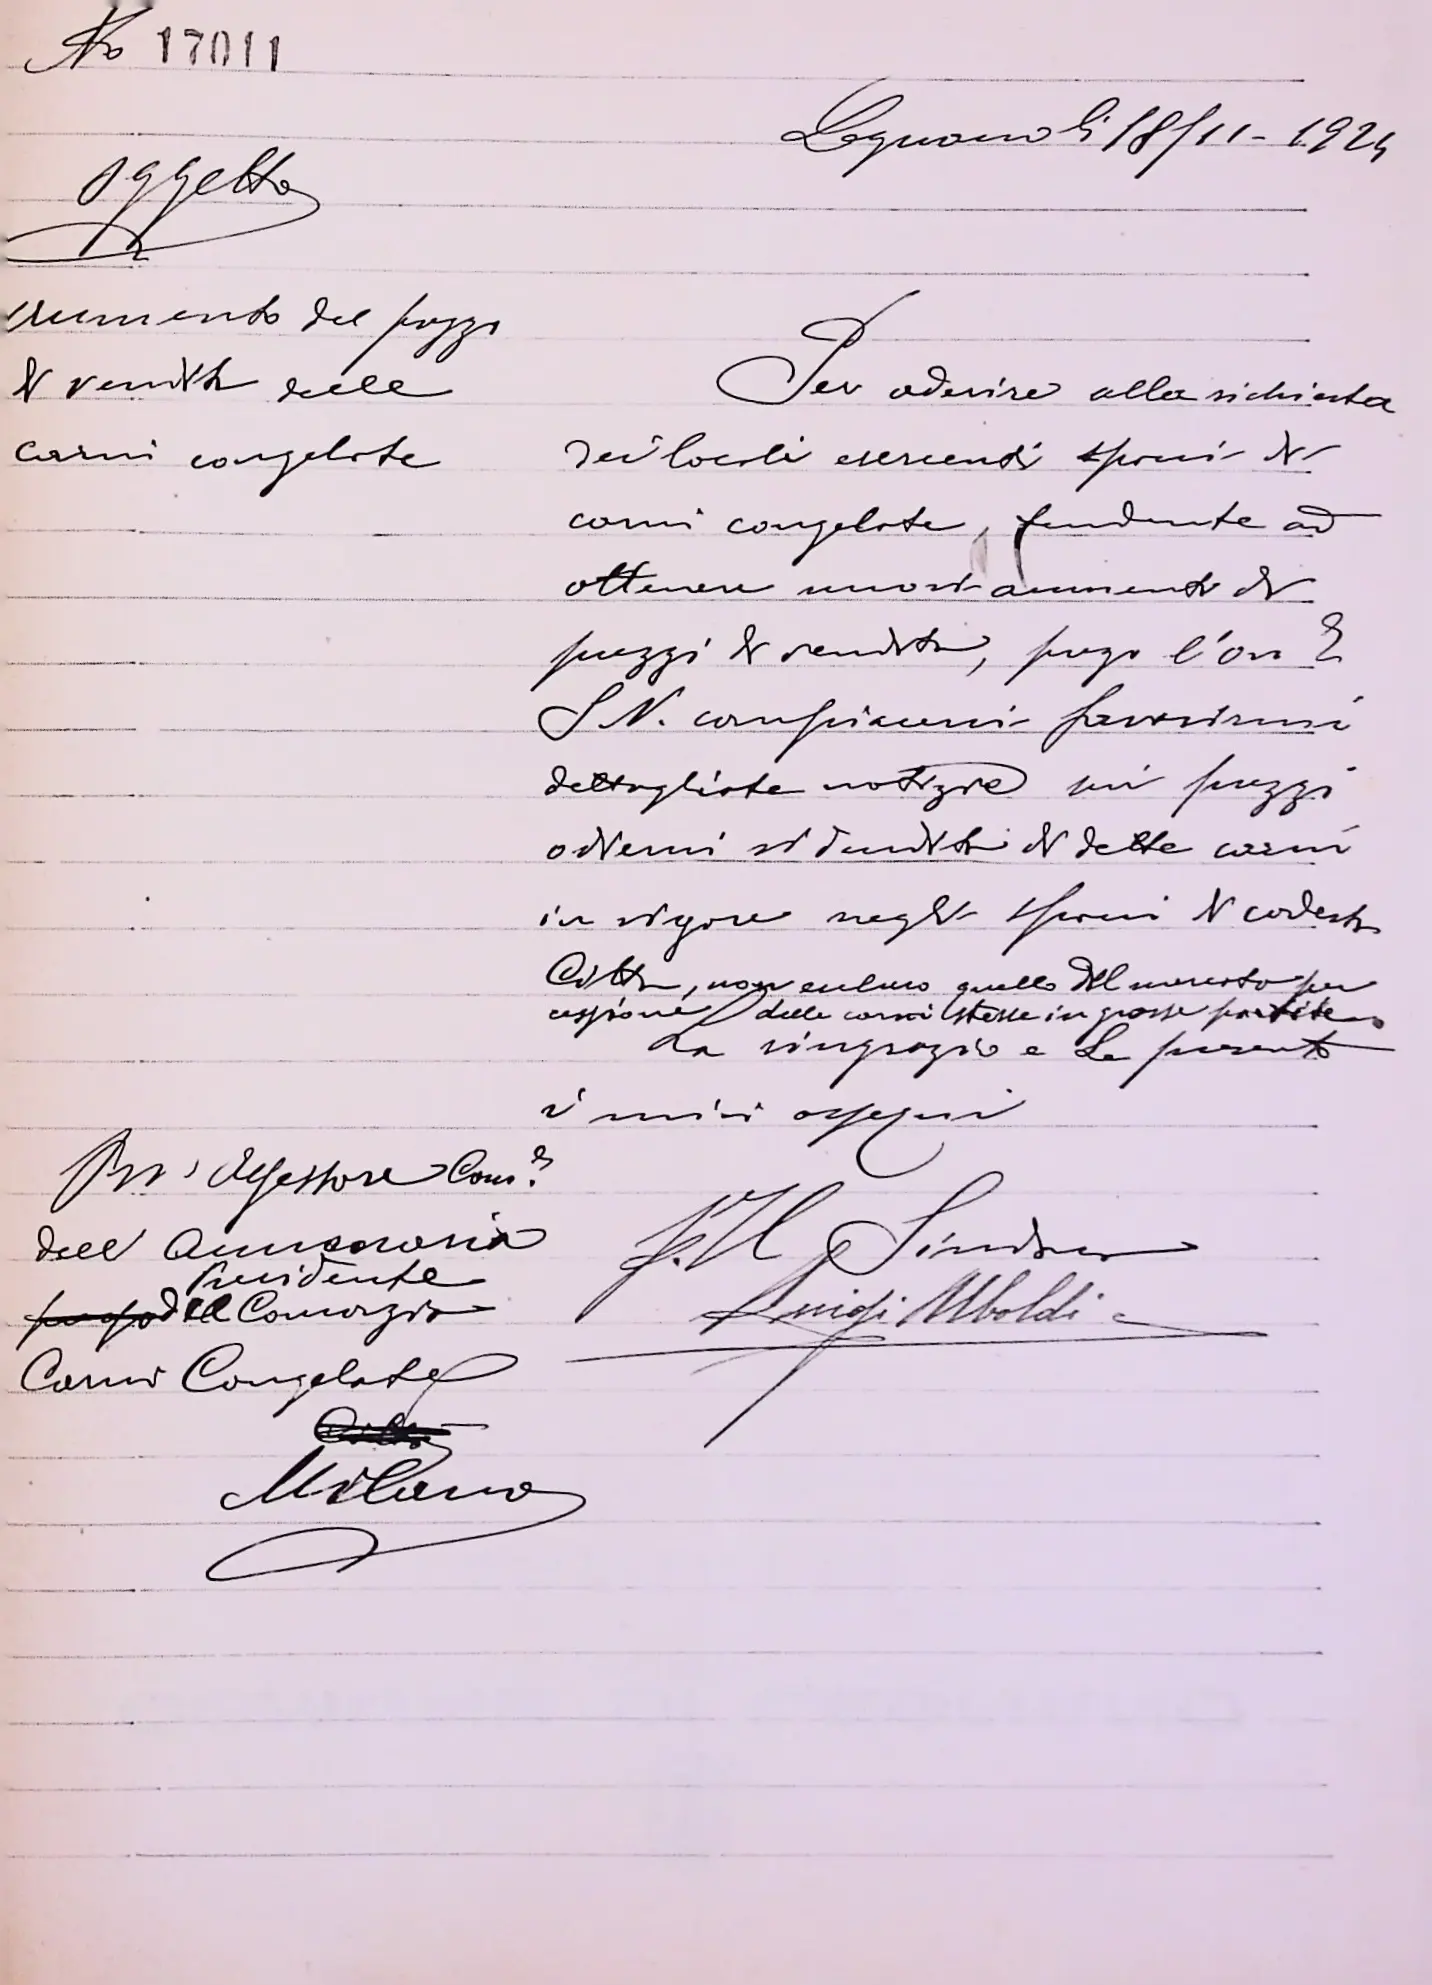 No 17011
Legnano li 18/11-1924
Oggetto
Aumento del prezzo
di vendita delle
carni congelate
Per aderire alla richiesta
dei locali esercenti spacci di
carni congelate, tendente ad
ottenere nuovi aumenti di
prezzi di vendita, prego l'On
S. V. compiacersi favorirmi
dettagliate notizie sui prezzi
odierni di vendita di dette carni
in vigore negli spacci di codesta
Città, non escluso quello del mercato per
cessione delle carni stesse in grosse partite.
La ringrazio e Le presento
i miei ossequi
Assessore Com.
dell'Annonaria
Presidente
del Consorzio
Carni Congelate
Milano
f. Il Sindaco
Luigi Uboldi